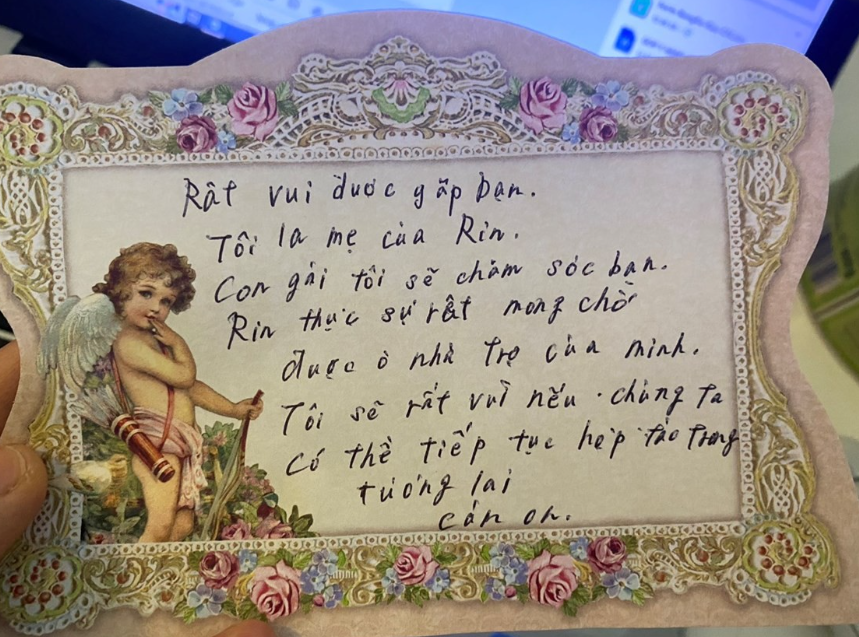 Rât vui đuoc găp bạn.
Tôi la mẹ của Rin.
Con gái tôi sẽ chăm sóc bạn.
Rin thực sự rất mong chờ
được ỏ nhà Trọ của mình.
Tôi sẽ rất vui nếu chúng ta
Có thể tiếp tục hợp tác trong
tương lai
cản on.